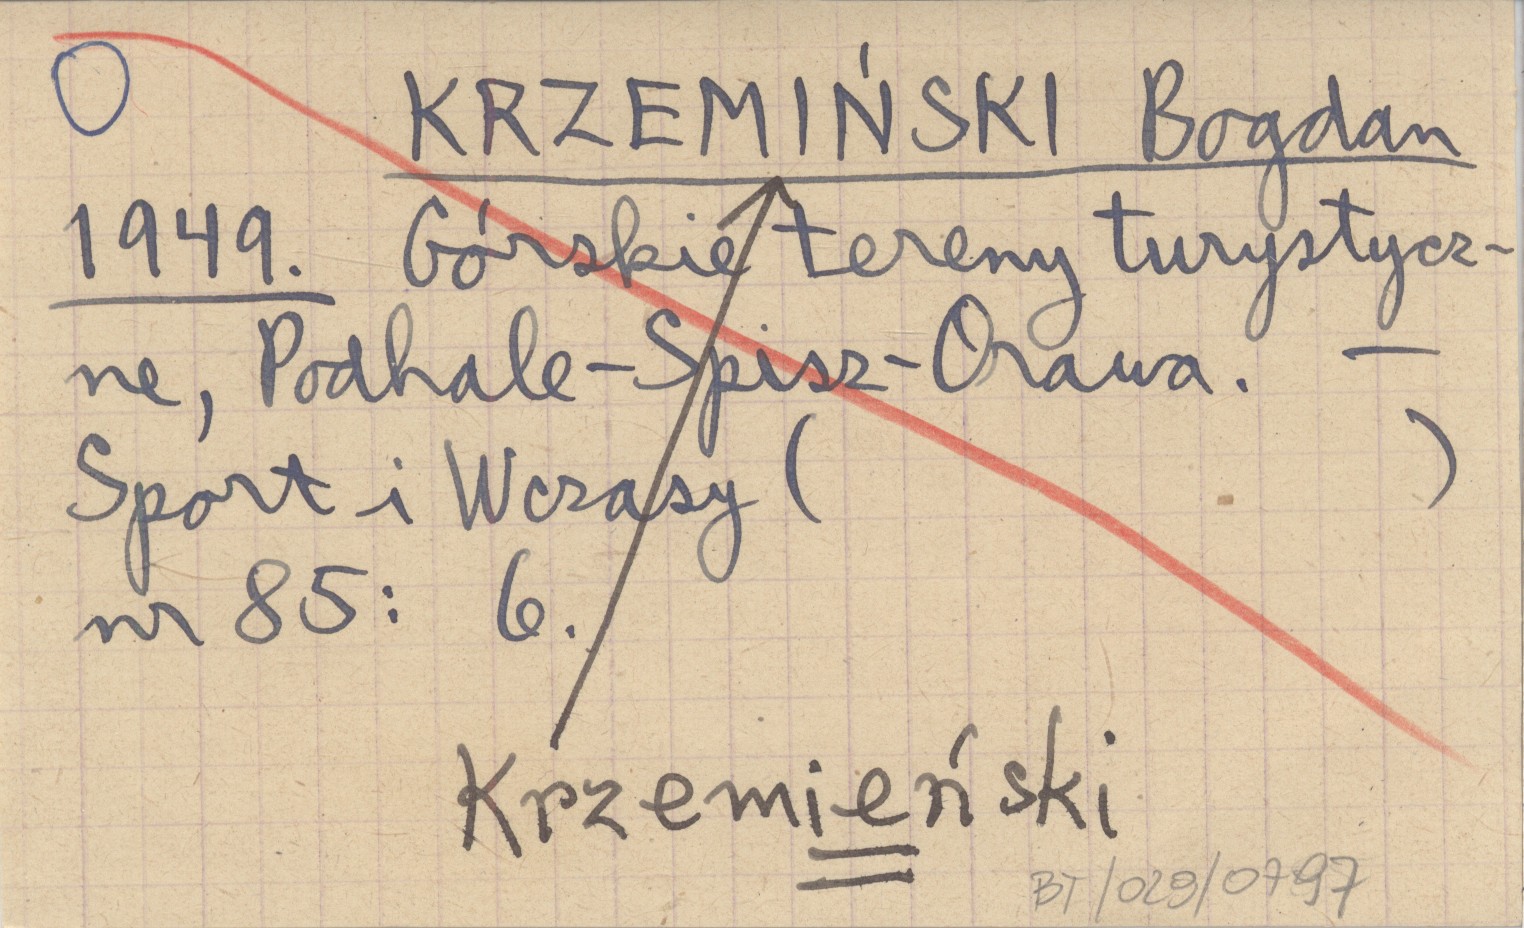 KRZEMIŃSKI Bogdan
1949. Górskie tereny turystycz-
ne, Podhale-Spisz-Orawa. —
Sport i Wczasy ( )
nr 85: 6.
Krzemieński
BT/029/0797